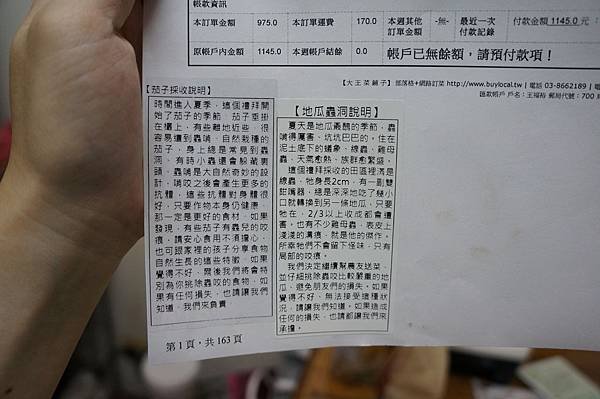 帳款資訊
本訂單金額 975.0 本訂單運費 170.0 本週其他訂單金額 -無- 最近一次付款記錄 付款金額 1145.0 元
原帳戶內金額 1145.0 本週帳戶結餘 0.0 帳戶已無餘額，請預付款項！
【大王菜鋪子】部落格+網路訂菜 http://www.buylocal.tw | 電話 03-8662189 |
匯款帳戶 戶名：王福裕 郵局代號：700
【茄子採收說明】
時間進入夏季，這個禮拜開
始了茄子的季節，茄子垂掛
在櫃上，有些離地近些，很
容易遭到蟲啃，自然栽種的
茄子，身上總是常見到蟲
洞，有時小蟲還會躲藏裏
頭，蟲啃是大自然奇妙的設
計，啃咬之後會產生更多的
抗體，這些抗體對身體很
好，只要作物本身仍健康，
那一定是更好的食材，如果
發現，有些茄子有蟲兒的咬
痕，請安心食用不須擔心，
也可跟家裡的孩子分享食物
自然生長的這些特徵，如果
覺得不好，爾後我們將會特
別為你挑除蟲咬的食物，如
果有任何的損失，也請讓我們
知道，我們來負責
【地瓜蟲洞說明】
夏天是地瓜最醜的季節，蟲
啃得厲害、坑坑巴巴的。住在
泥土底下的蟻象、線蟲、雞母
蟲，天氣愈熱、族群愈繁盛。
這個禮拜採收的田區裡滿是
線蟲，牠身長2cm，有一副雙
鉗嘴器，總是深深地吃了幾小
口就轉換到另一條地瓜，只要
牠在，2/3以上收成都會遭
害。也有不少雞母蟲，表皮上
淺淺的溝痕，就是他的傑作。
所幸牠們不會留下怪味，只有
局部的咬痕。
我們決定繼續幫農友送菜，
並仔細挑除蟲咬比較嚴重的地
瓜，避免朋友們的損失。如果
覺得不好、無法接受這種狀
況，請讓我們知道。如果造成
任何的損失，也請都讓我們來
承擔。
第 1 頁，共 163 頁